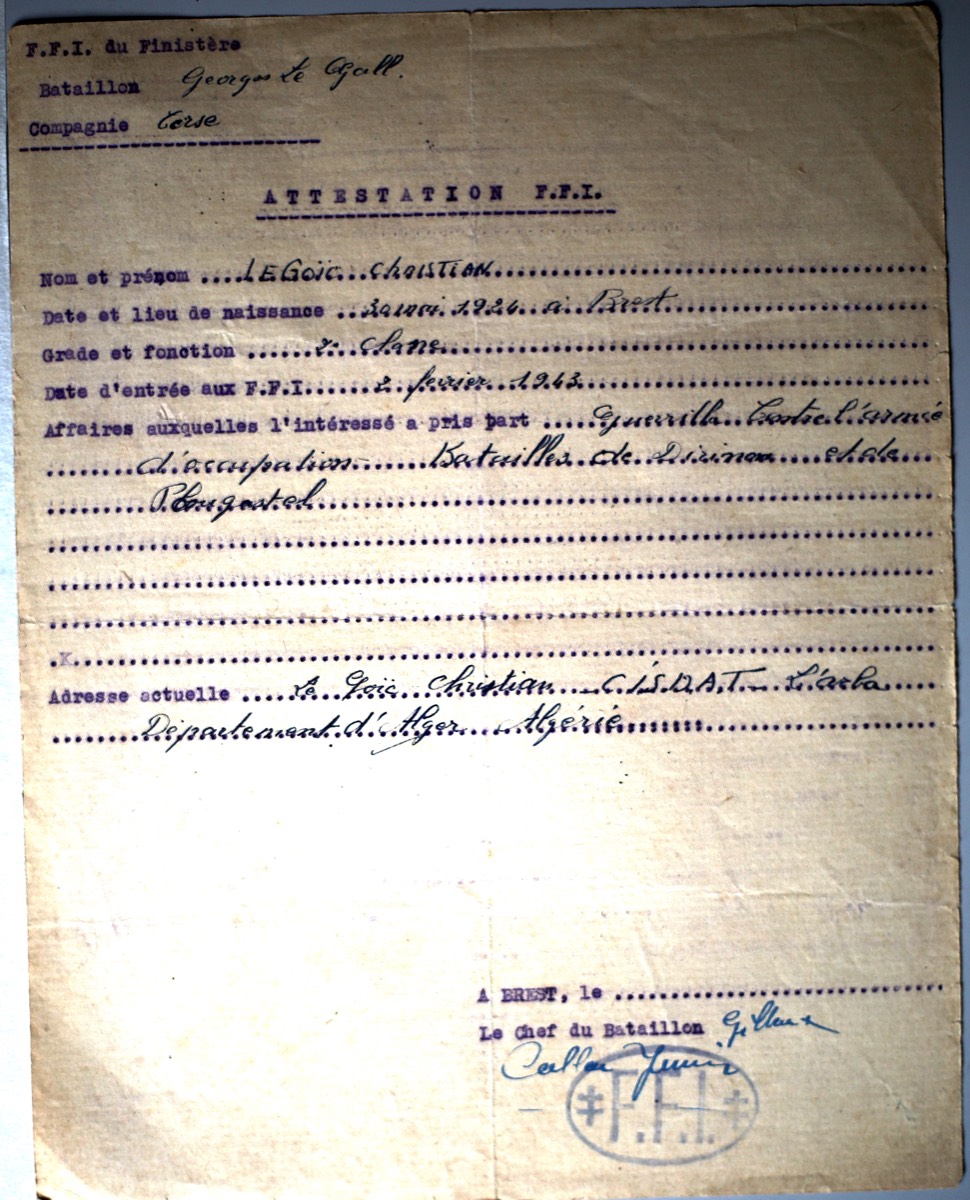 F.F.I. du Finistère
Bataillon Georges Le Gall.
Compagnie
ATTESTATION F.F.I.
Nom et prénom ....LE Goïc...Christian.......
Date et lieu de naissance .......1924 à Brest.......
Grade et fonction ......2e Classe.......
Date d'entrée aux F.F.I......2 fevrier 1943.......
Affaires auxquelles l'intéressé a pris part ....Guerrilla Contre l'armée
.......d'occupation.... Batailles de Dirinon et de
.......Plougastel.......
.......
.......
.......
.X.......
Adresse actuelle ....Le Goïc Christian C.I.S.D.A.T. L'arba....
.......Département d'Alger Algérie.......
A BREST, le .......
Le Chef du Bataillon
F.F.I.